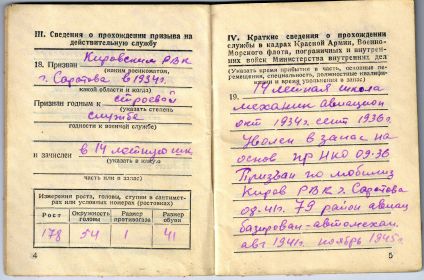 III. Сведения о прохождении призыва на
действительную службу
18. Призван Кировским РВК
(каким военкоматом,
г. Саратова в 1934г.
какой области и когда)
Призван годным к строевой
(указать степень
службе
годности к военной службе)
и зачислен в 14 летную шк
(указать в какую
часть или в запас)
Измерения роста, головы, ступни в сантимет-
рах или условных номерах (ростовках)
Рост
Окружность головы
Размер противогаза
Размер обуви
178 54 41
4
IV. Краткие сведения о прохождении
службы в кадрах Красной Армии, Военно-
Морского флота, пограничных и внутрен-
них войск Министерства внутренних дел
(Указать время прибытия в часть, основные пе-
ремещения, специальность, должностные квалифи-
кации и время увольнения в запас)
19. 14 летная школа
механик авиацион
окт 1934г. сент 1936г.
Уволен в запас на
основ пр НКО 09-36
Призван по мобилиз
Киров РВК г. Саратова
09-41г. 79 район авиац
базирован-автомехан.
авг 1941г. ноябрь 1945г.
5